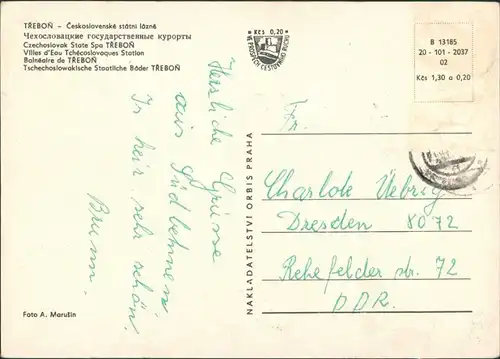 TŘEBOŇ - Československé státní lázně
Чехословацкие государственные курорты
Czechoslovak State Spa TŘEBOŇ
Villes d'Eau Tchécoslovaques Station
Balnéaire de TŘEBOŇ
Tschechoslowakische Staatliche Bäder TŘEBOŇ
Kčs 0,20
VE PROSPĚCH CESTOVNÍHO RUCHU
B 13185
20 - 101 - 2037
02
Kčs 1,30 a 0,20
Herzliche Grüsse
aus Südböhmen
Is heir sehr schön.
Brumm.
NAKLADATELSTVÍ ORBIS PRAHA
Fr.
Charlok Uebrig
Dresden 8072
Rehefelder str. 72
DDR.
Foto A. Marušin